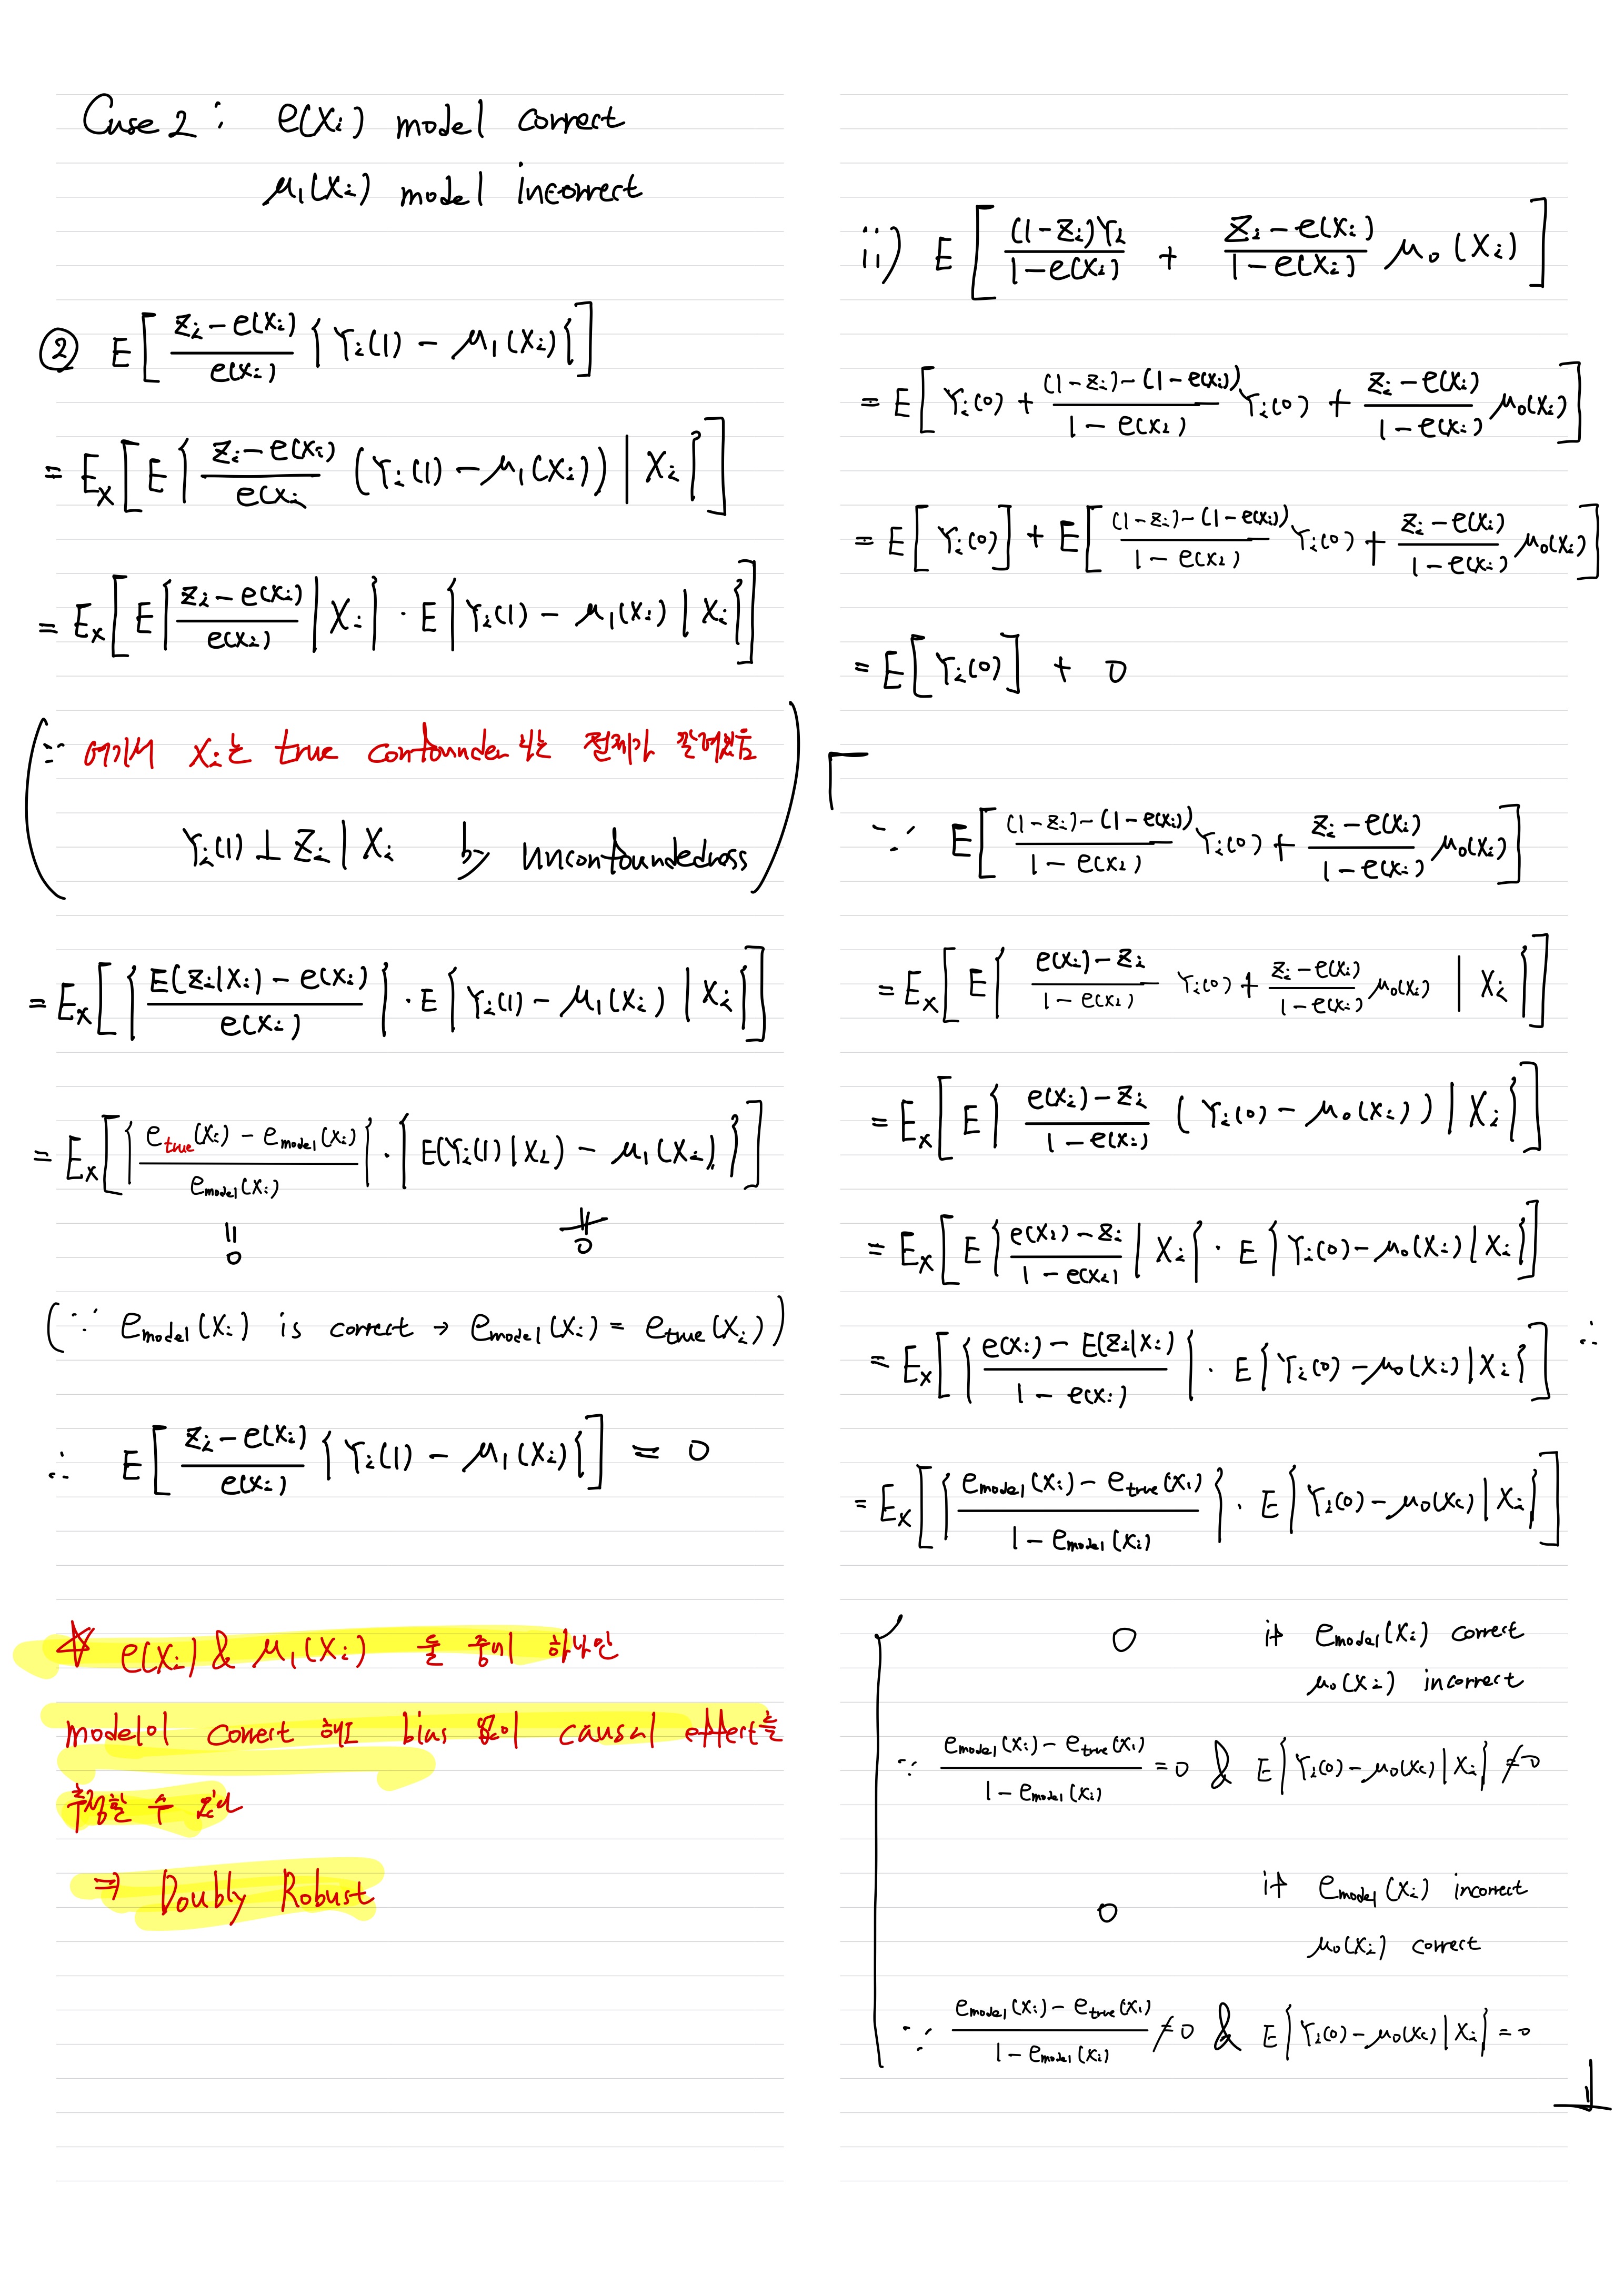 Case 2 : e(Xi) model correct
μ1(Xi) model incorrect
② E[ (Zi − e(Xi))/e(Xi) { Yi(1) − μ1(Xi) } ]
= Ex[ E{ (Zi − e(Xi))/e(Xi (Yi(1) − μ1(Xi)) | Xi } ]
= Ex[ E{ (Zi − e(Xi))/e(Xi) | Xi } · E{ Yi(1) − μ1(Xi) | Xi } ]
( ∵ 여기서 Xi는 true confounder 라는 전제가 깔려있음
Yi(1) ⊥ Zi | Xi by unconfoundedness )
= Ex[ { (E(Zi|Xi) − e(Xi))/e(Xi) } · E{ Yi(1) − μ1(Xi) | Xi } ]
= Ex[ { (e_true(Xi) − e_model(Xi))/e_model(Xi) } · { E(Yi(1)|Xi) − μ1(Xi) } ]
= 0 ≠ 0
( ∵ e_model(Xi) is correct → e_model(Xi) = e_true(Xi) )
∴ E[ (Zi − e(Xi))/e(Xi) { Yi(1) − μ1(Xi) } ] = 0
☆ e(Xi) & μ1(Xi) 둘 중에 하나만
model이 correct 해도 bias 없이 causal effect를
추정할 수 있다
⇒ Doubly Robust
ii) E[ (1−Zi)Yi/(1−e(Xi)) + (Zi − e(Xi))/(1−e(Xi)) μ0(Xi) ]
= E[ Yi(0) + ((1−Zi)−(1−e(Xi)))/(1−e(Xi)) Yi(0) + (Zi − e(Xi))/(1−e(Xi)) μ0(Xi) ]
= E[ Yi(0) ] + E[ ((1−Zi)−(1−e(Xi)))/(1−e(Xi)) Yi(0) + (Zi − e(Xi))/(1−e(Xi)) μ0(Xi) ]
= E[ Yi(0) ] + 0
∵ E[ ((1−Zi)−(1−e(Xi)))/(1−e(Xi)) Yi(0) + (Zi − e(Xi))/(1−e(Xi)) μ0(Xi) ]
= Ex[ E{ (e(Xi)−Zi)/(1−e(Xi)) Yi(0) + (Zi−e(Xi))/(1−e(Xi)) μ0(Xi) | Xi } ]
= Ex[ E{ (e(Xi)−Zi)/(1−e(Xi)) (Yi(0) − μ0(Xi)) | Xi } ]
= Ex[ E{ (e(Xi)−Zi)/(1−e(Xi)) | Xi } · E{ Yi(0)−μ0(Xi) | Xi } ]
= Ex[ { (e(Xi) − E(Zi|Xi))/(1−e(Xi)) } · E{ Yi(0) −μ0(Xi) | Xi } ] ∴
= Ex[ { (e_model(Xi) − e_true(Xi))/(1−e_model(Xi)) } · E{ Yi(0) −μ0(Xi) | Xi } ]
0 if e_model(Xi) correct
μ0(Xi) incorrect
∵ (e_model(Xi) − e_true(Xi))/(1−e_model(Xi)) = 0 & E{ Yi(0) −μ0(Xi) | Xi } ≠ 0
if e_model(Xi) incorrect
0
μ0(Xi) correct
∵ (e_model(Xi) − e_true(Xi))/(1−e_model(Xi)) ≠ 0 & E{ Yi(0) −μ0(Xi) | Xi } = 0